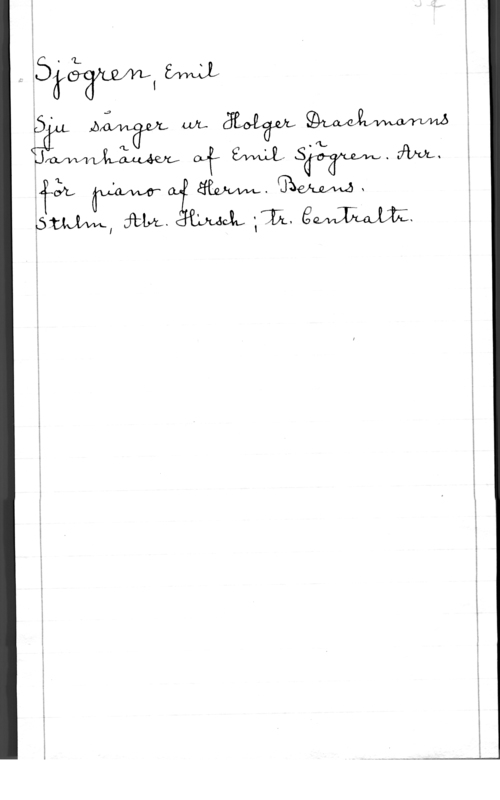 Sjögren, Emil
Sju sånger ur Holger Drachmanns
Tannhäuser af Emil Sjögren. Arr.
för piano af Herm. Berens.
Sthlm, Abr. Hirsch ; Tr. Centraltr.